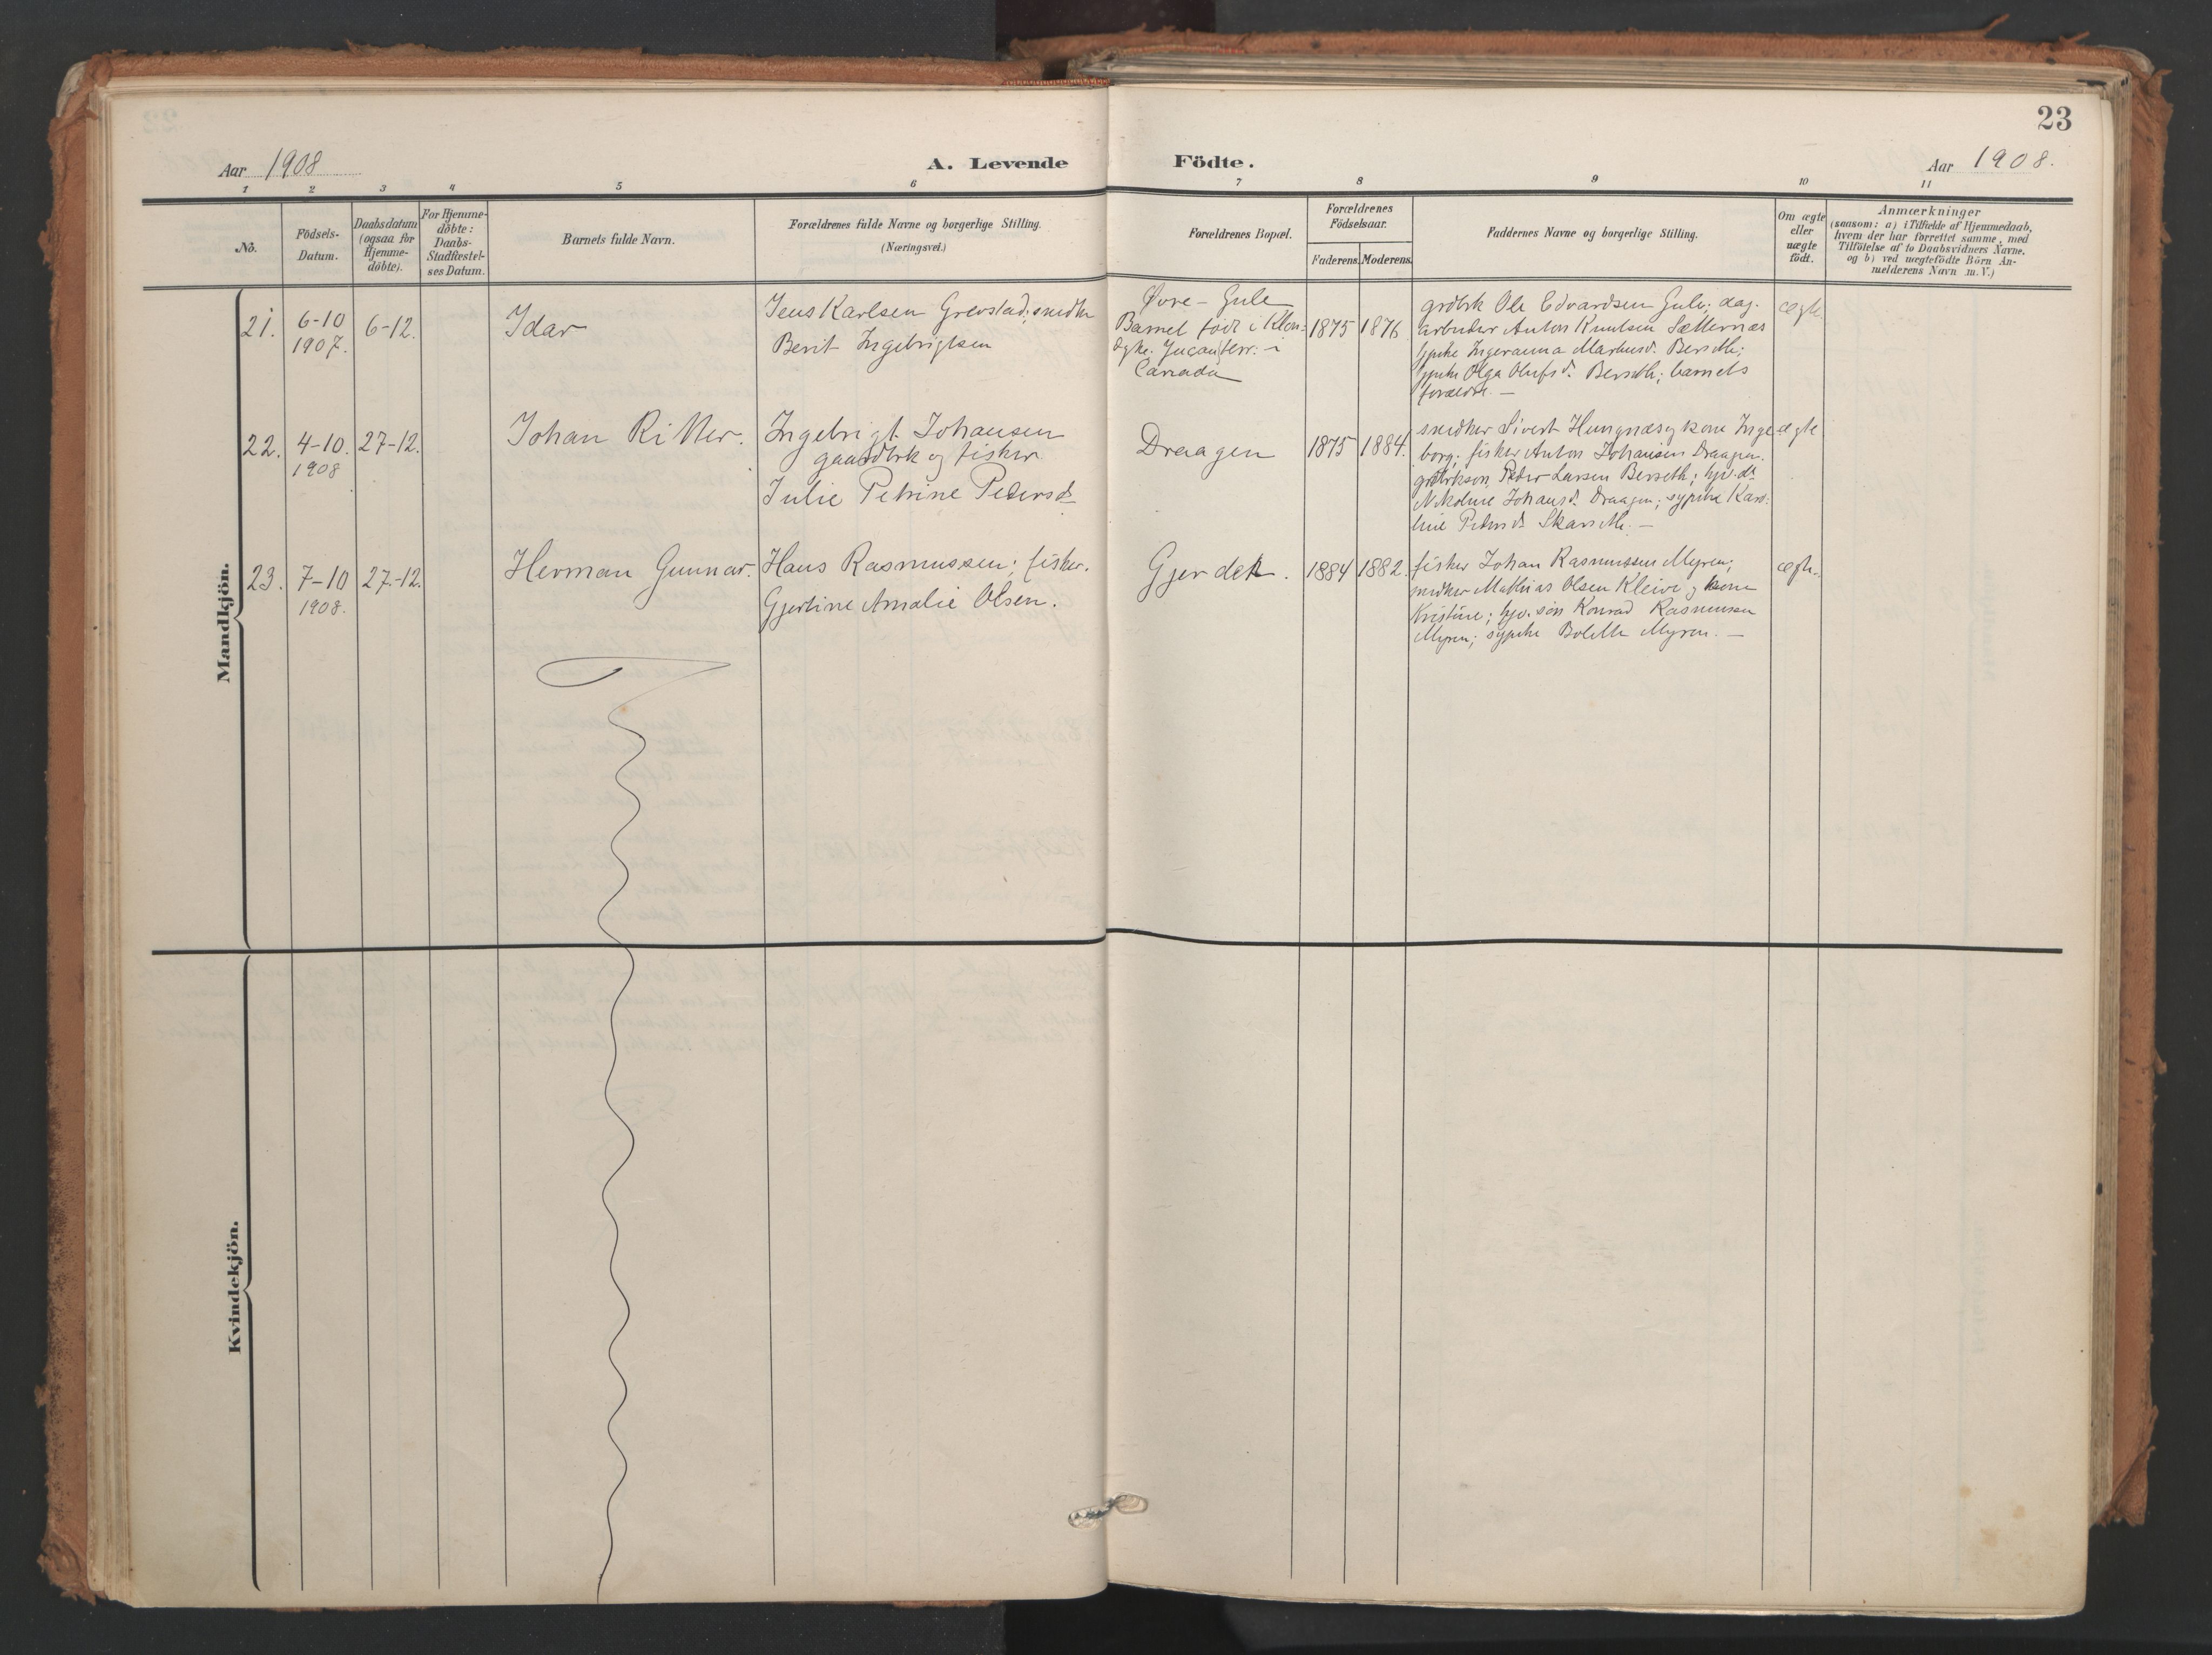 23
Aar 1908
A. Levende
Födte.
Aar 1908.
1 2 3 4 5 6 7 8 9 10 11
No.
Födsels-
Datum.
Daabsdatum
(ogsaa for
Hjemme-
döbte).
For Hjemme-
döbte:
Daabs-
Stadfæstel-
ses Datum.
Barnets fulde Navn.
Forældrenes fulde Navne og borgerlige Stilling.
(Næringsvei.)
Forældrenes Bopæl.
Forældrenes
Födselsaar.
Faderens. Moderens.
Faddernes Navne og borgerlige Stilling.
Om ægte
eller
uægte
födt.
Anmærkninger
(saasom: a) i Tilfælde af Hjemmedaab,
hvem der har forrettet samme, med
Tilföielse af to Daabsvidners Navne,
og b) ved uægtefödte Börn An-
melderens Navn m. V.)
Mandkjön.
21.
6-10
1907.
6-12.
Idar
Jens Karlsen Grevstad, snedker
Berit Ingebrigtsen
Øvre-Gule
Barnet född i Klon-
dyke. Jucan terr. i
Canada
1875 1876
grdbrk Ole Edvardsen Gule; dag-
arbeider Anton Knutsen Sætternæs
sypike Ingeranna Markusd. Berseth;
sypike Olga Olufsd. Berseth; barnets
forældre. —
ægte.
22.
4-10.
1908
27-12.
Johan Ritter.
Ingebrigt Johansen
gaardbrk og fisker
Julie Petrine Pedersd.
Draagen
1875 1884.
snedker Sivert Hungnæs og kone Inge
borg; fisker Anton Johansen Draagen.
grdbrkson Peder Larsen Berseth; hjv. dt.
Nikoline Johansd. Draagen; sypike Karo-
line Pedersd. Skarseth. —
ægte
23.
7-10
1908.
27.-12.
Herman Gunnar.
Hans Rasmussen; fisker.
Gjertine Amalie Olsen.
Gjerdet.
1884 1882.
fisker Johan Rasmussen Myren;
snedker Mathias Olsen Kleive og kone
Kristine; hjv. sön Konrad Rasmussen
Myren; sypike Bolette Myren. —
ægte.
Kvindekjön.